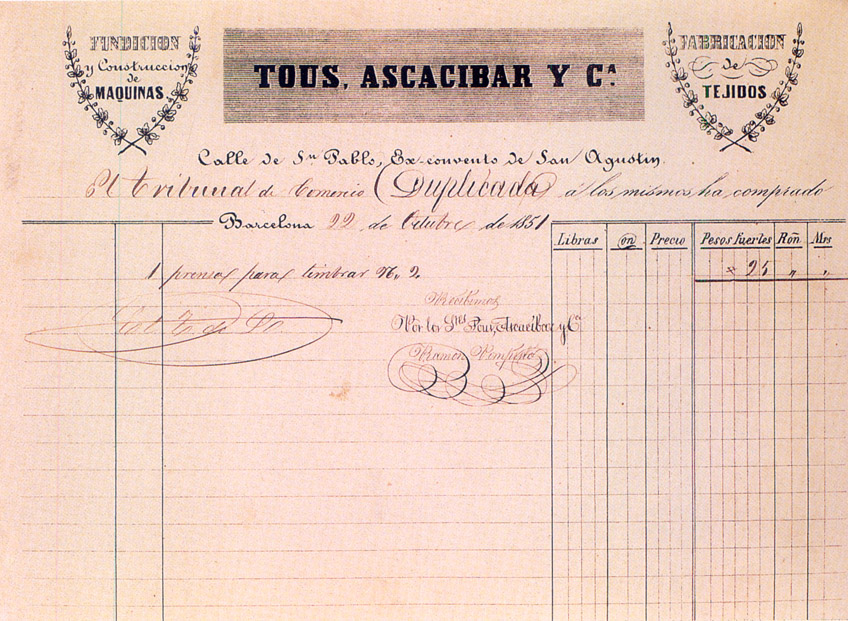 FUNDICION
y Construccion
de
MAQUINAS.
TOUS, ASCACIBAR Y Cª.
FABRICACION
de
TEJIDOS
Calle de Sn Pablo, Ex-convento de San Agustin.
El Tribunal de Comercio (Duplicada) á los mismos ha comprado
Barcelona 22 de Octubre de 1851
Libras @ Precio Pesos fuertes Rón Mrs
1 prensa para timbrar N. 2. 
Recibimos
Por los Sres Tous, Ascacibar y Cª
Ramon